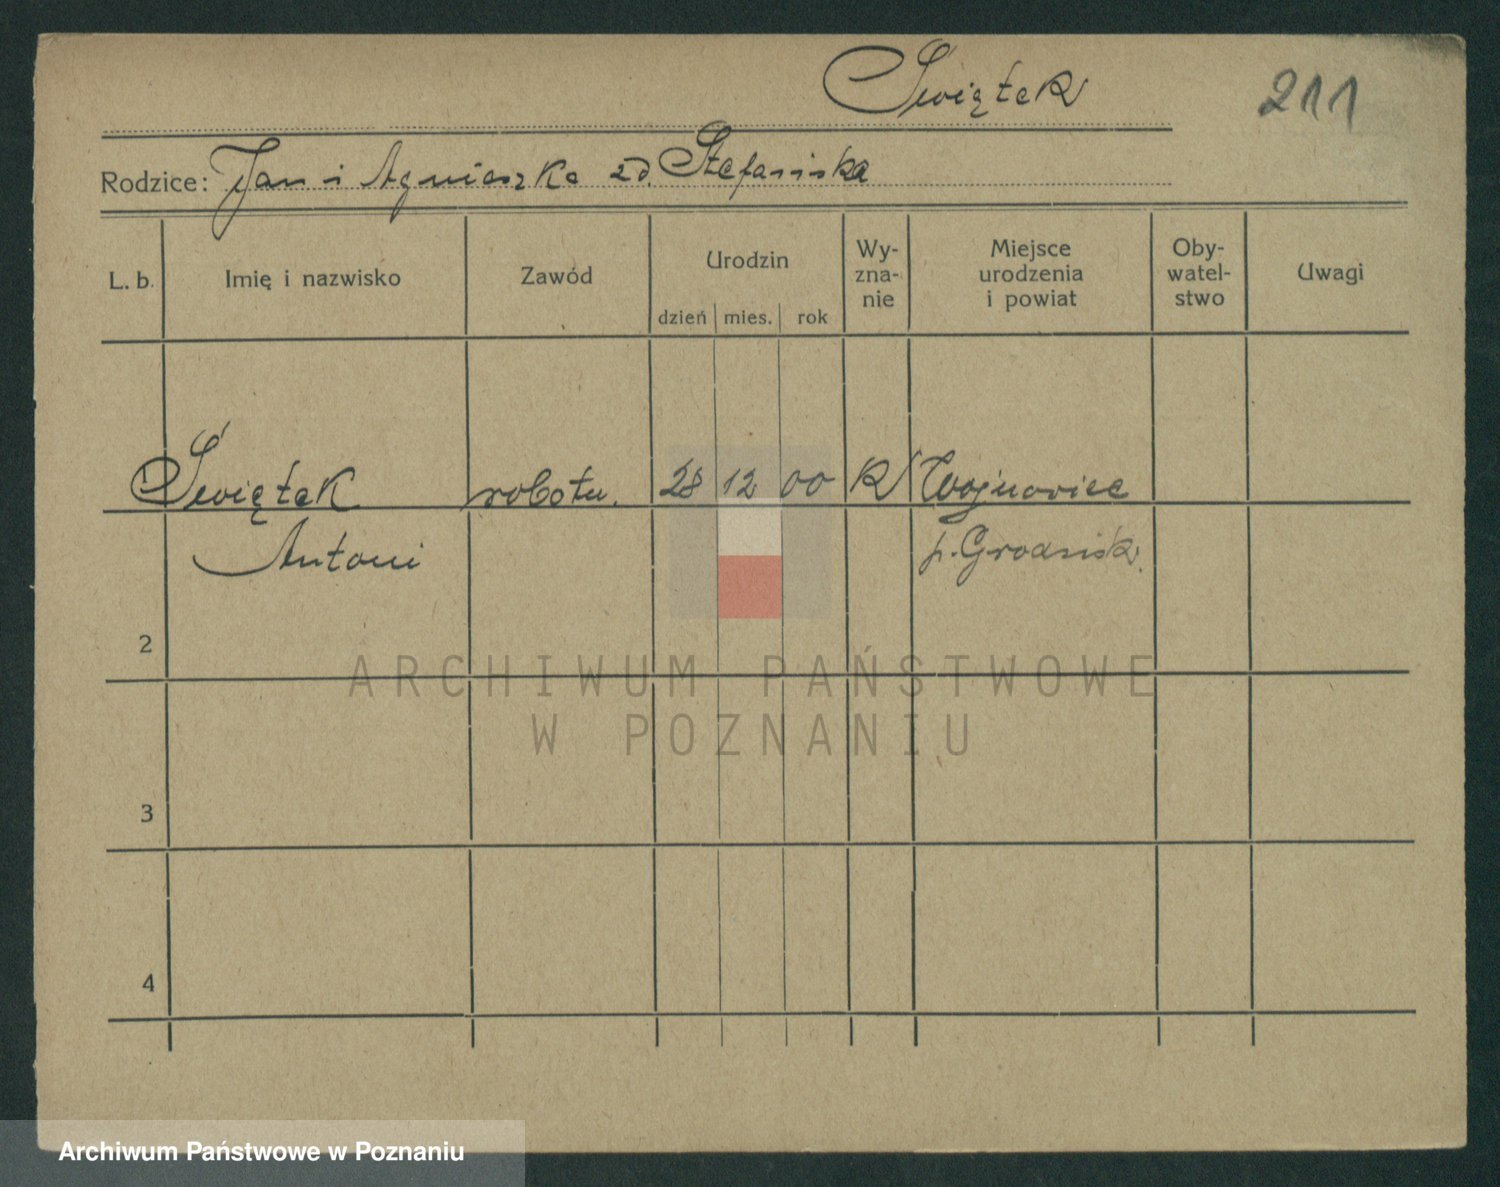 Świątek
211
Rodzice: Jan i Agnieszka zd. Stefańska
L. b. Imię i nazwisko Zawód Urodzin dzień mies. rok Wy-zna-nie Miejsce urodzenia i powiat Oby-watel-stwo Uwagi
1 Świątek robotn. 28 12 00 K Wojnowice
Antoni p. Grodzisk.
2
ARCHIWUM PAŃSTWOWE
W POZNANIU
3
4
Archiwum Państwowe w Poznaniu